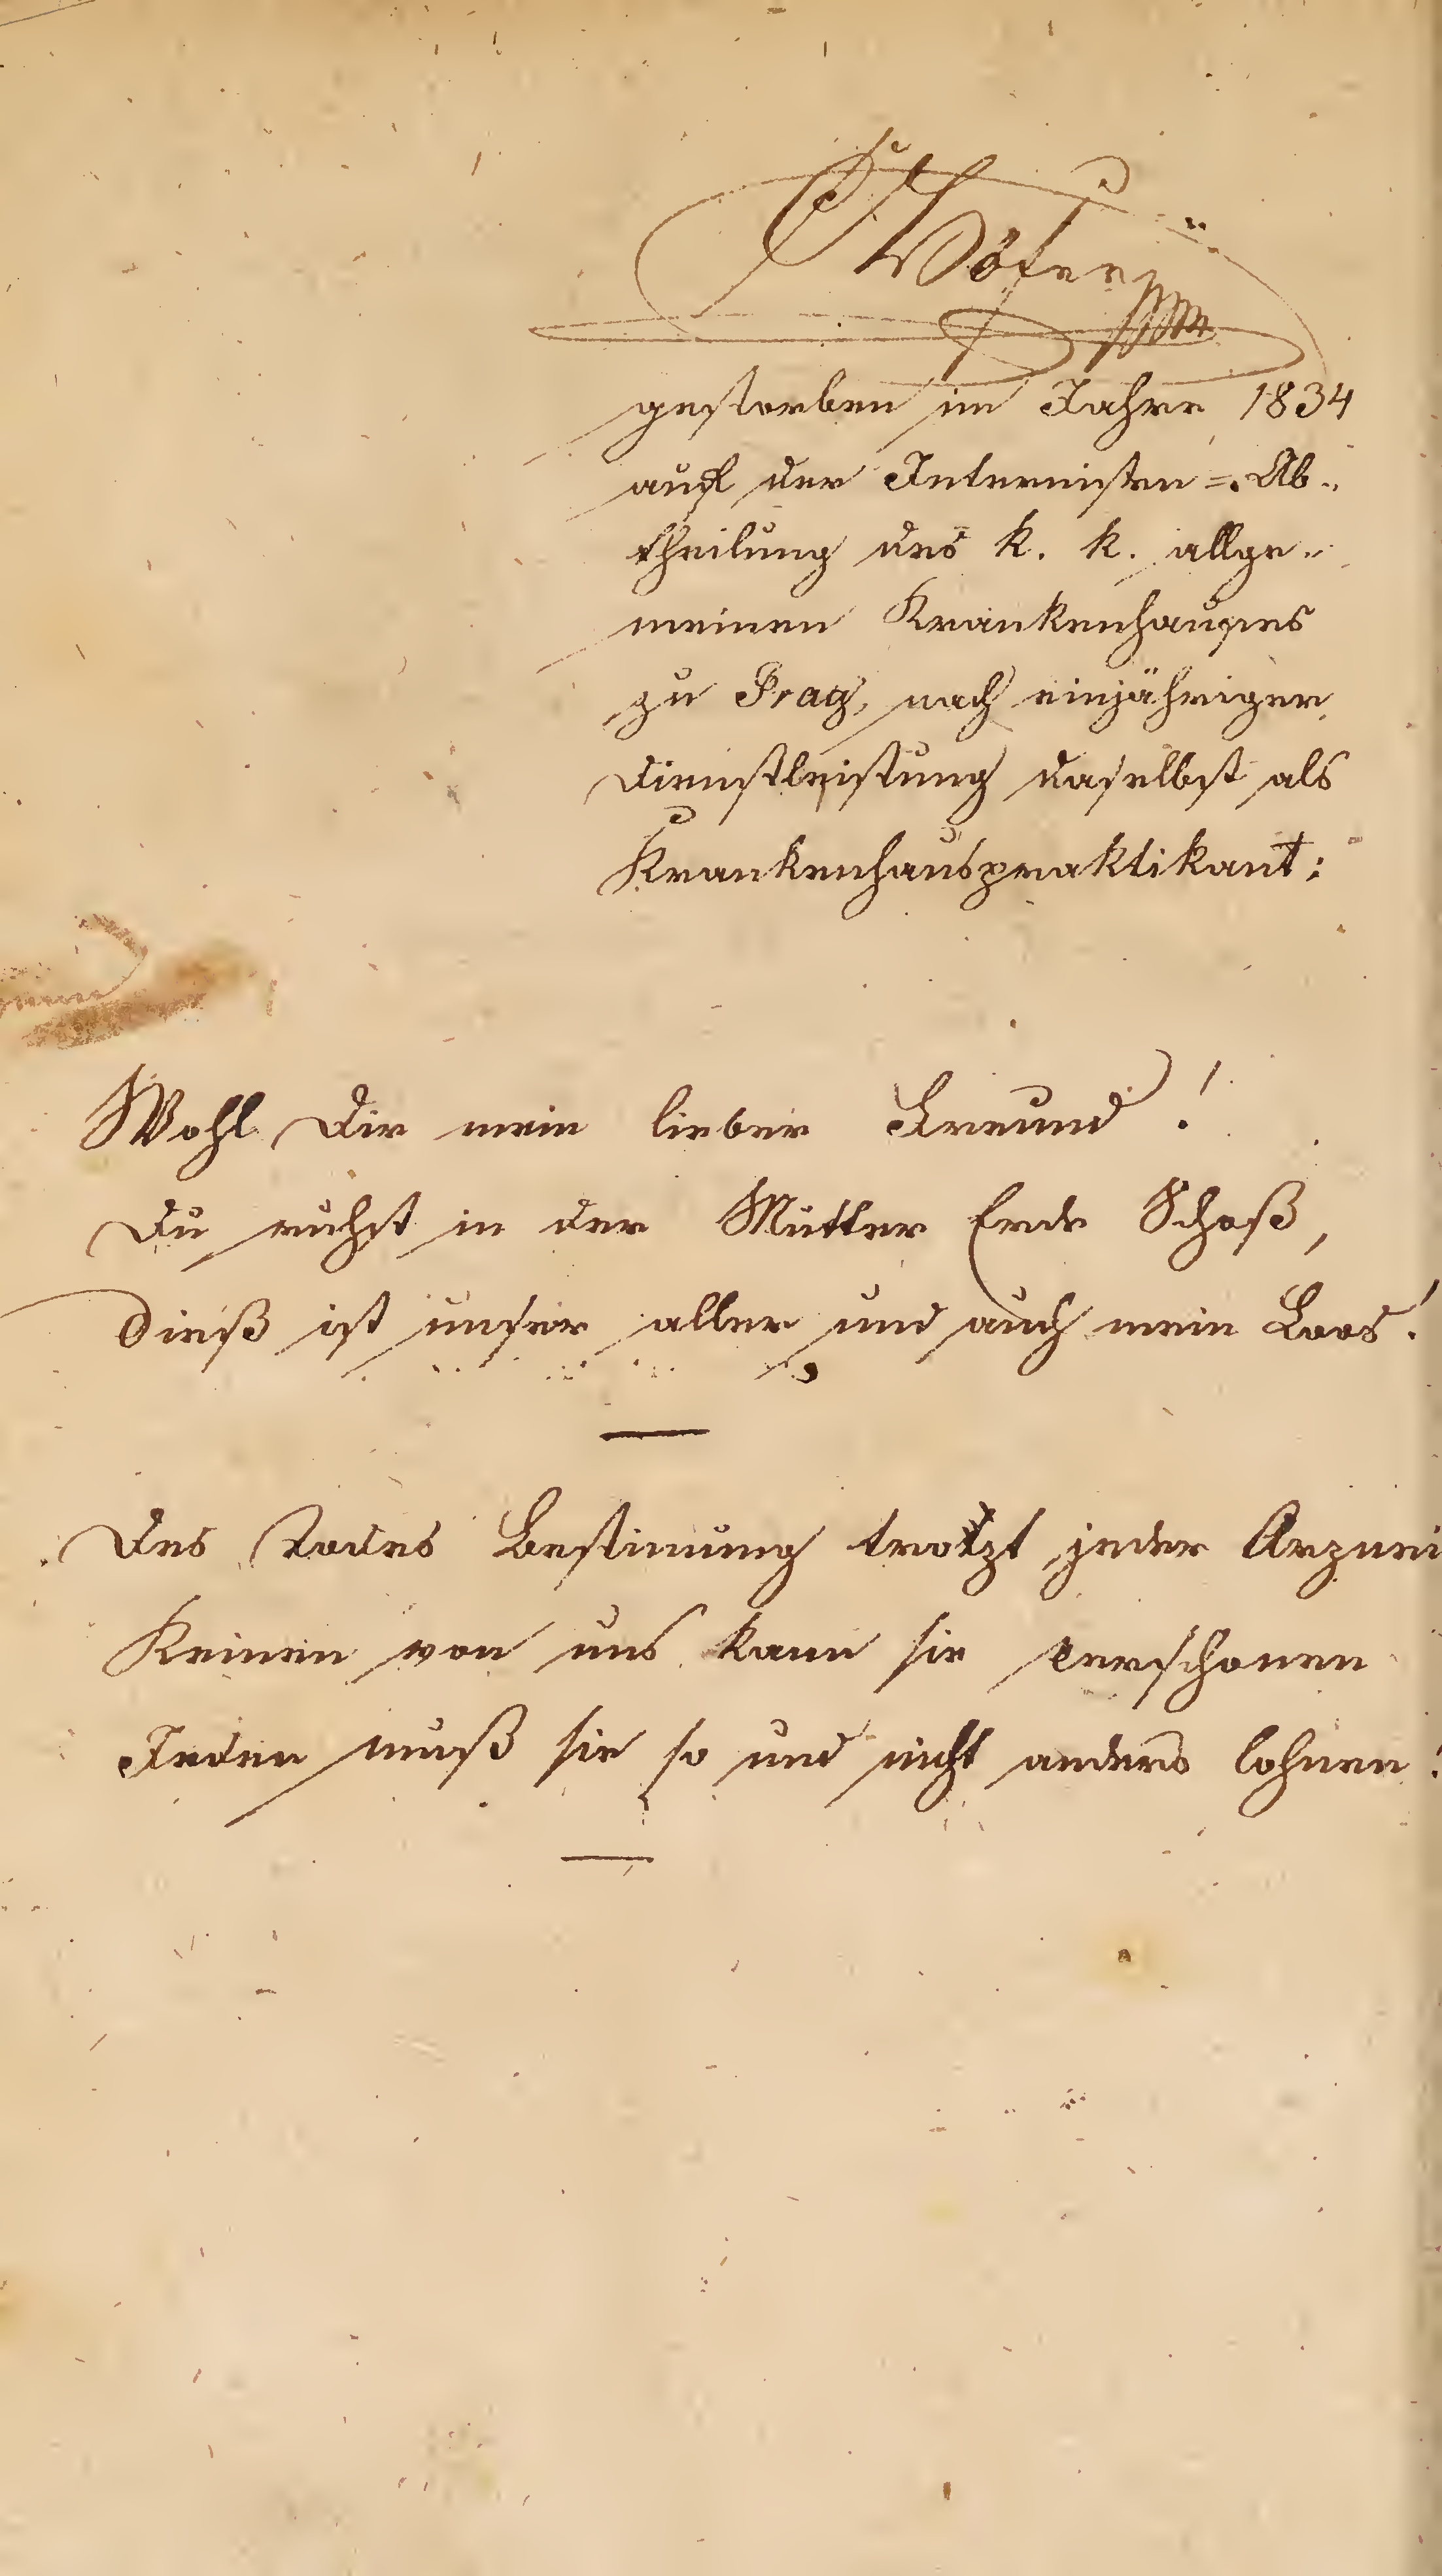 gestorben im Jahre 1834
auf der Internisten=Ab-
theilung des k. k. allge-
meinen Krankenhauses
zu Prag, nach einjähriger
Dienstleistung daselbst als
Krankenhauspraktikant:
Wohl Dir mein lieber Freund!
Du ruhst in der Mutter Erde Schoß,
Dieß ist unser aller und auch mein Loos!
Des Todes Bestimung trotzt jeder Arznei
Keinen von uns kann sie verschonen
Jeden muß sie so und nicht anders lohnen!